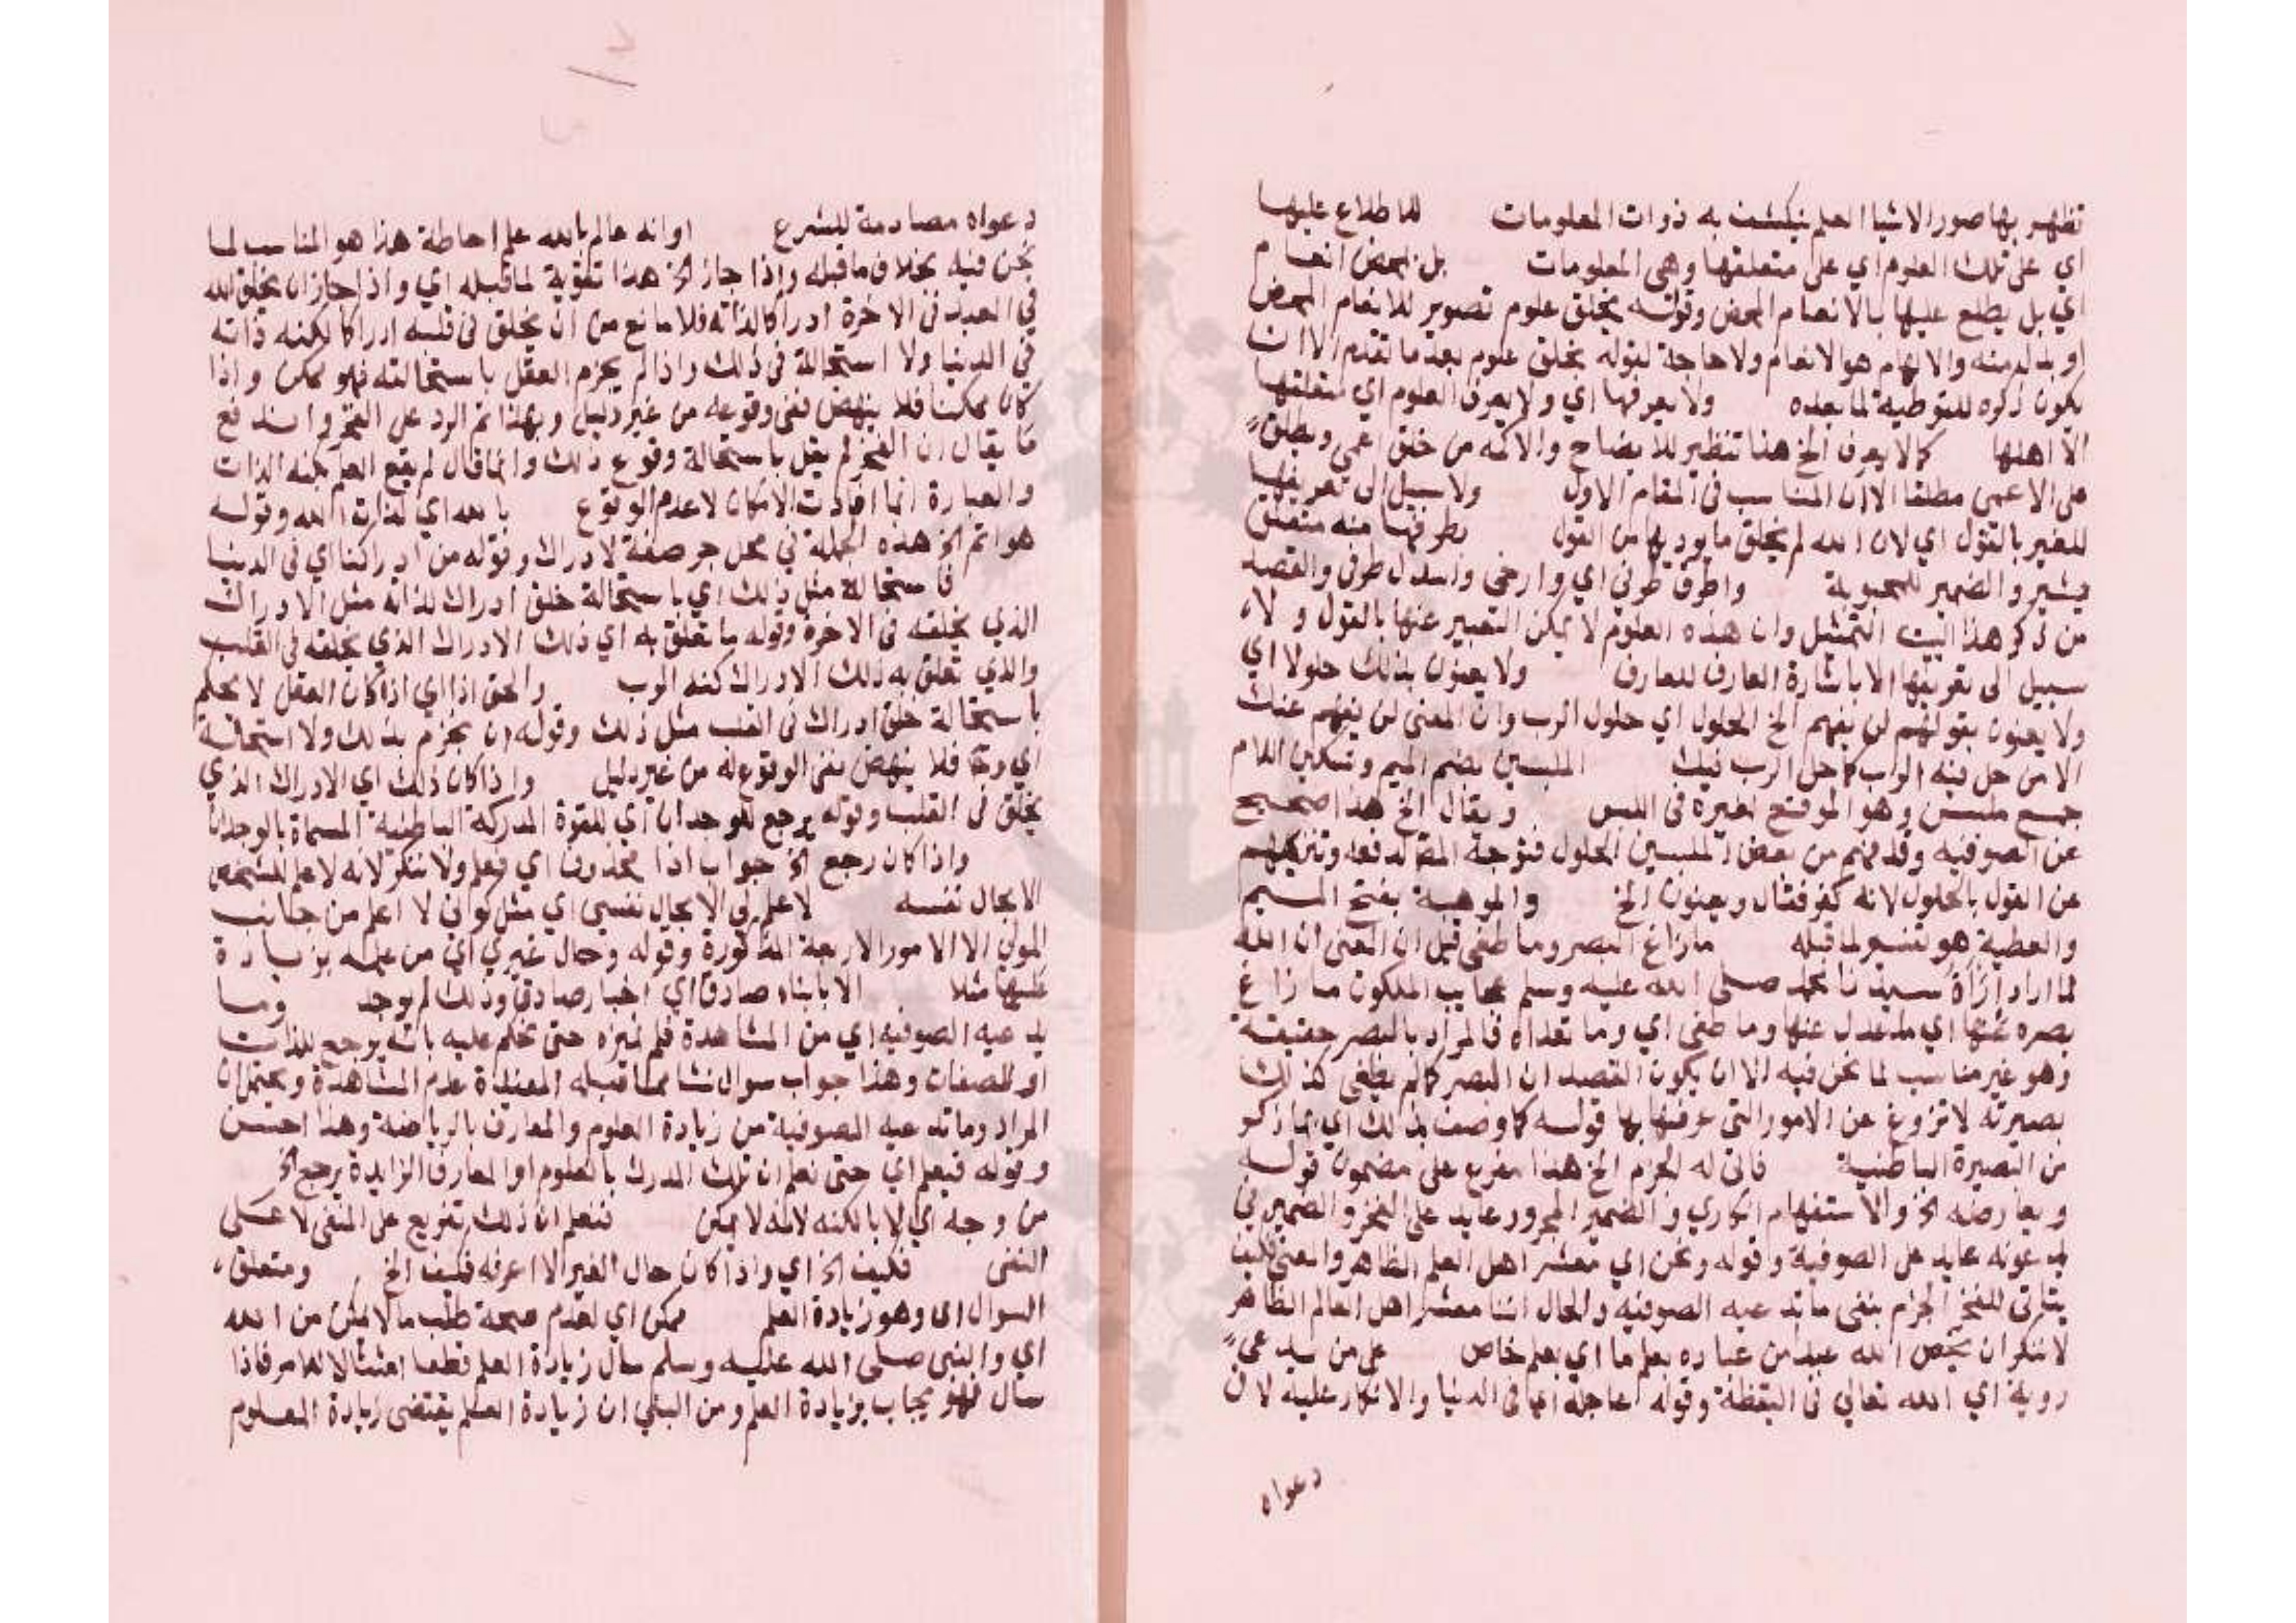 تظهر بها صور الاشيا العلم ينكشف به ذوات المعلومات للاطلاع عليها
اي على تلك العلوم اي على متعلقها وهي المعلومات بل بمحض انعام
اي بل يطلع عليها بالانعام المحض وقوله بخلق علوم تصوير للانعام المحض
او بدل منه والالهام هو الانعام ولا حاجة لقوله بخلق علوم بعد ما تقدم الا ان
يكون ذكره للتوطية لما بعده ولا يعرفها اي ولا يعرف العلوم اي متعلقها
الا اهلها كما لا يعرف الخ هذا تنظير للايضاح والاكمه من خلق اعمى ويطلق
على الاعمى مطلقا الا ان المناسب في المقام الاول ولا سبيل الى تعريفها
للغير بالقول اي لان الله لم يخلق ما يوديها من القول بطرفها منه متعلق
بيشير والضمير للمحبوبة واطرق طرفي اي وارخى واسدل طرفي والقصد
من ذكر هذا البيت التمثيل وان هذه العلوم لا يمكن التعبير عنها بالقول ولا
سبيل الى تعريفها الا باشارة العارف للعارف ولا يعنون بذلك حلولا اي
ولا يعنون بقولهم لن يفهم الخ الحلول اي حلول الرب وان المعنى لن يفهم عنك
الا من حل فيه الرب كما حل الرب فيك الملبسين بضم الميم وتسكين اللام
جمع ملبس وهو الموقع لغيره في اللبس ويقال الخ هذا صحيح
عن الصوفية وقد فهم من بعض الملبسين الحلول فتوجه المص لدفعه وتنزيههم
عن القول بالحلول لانه كفر فقال ويعنون الخ والموهبة بفتح الميم
والعطية هو تفسير لما قبله ما زاغ البصر وما طغى قيل ان المعنى ان الله
لما اراد ارآة سيدنا محمد صلى الله عليه وسلم عجايب الملكوت ما زاغ
بصره عنها اي ما عدل عنها وما طغى اي وما تعداه فالمراد بالبصر حقيقته
وهو غير مناسب لما نحن فيه الا ان يكون القصد ان البصر كما لم يطغى كذلك
بصيرته لا تزوغ عن الامور التي عرفها بها قوله كما وصف بذلك اي بما ذكر
من البصيرة الباطنية فانى له الجزم الخ هذا مفرع على مضمون قوله
ويعارضه الخ والاستفهام انكاري والضمير المجرور عايد على الفخر والضمير في
يدعونه عايد على الصوفية وقوله ونحن اي معشر اهل العلم الظاهر والمعنى كيف
يتاتى للفخر الجزم بنفي ما تدعيه الصوفية والحال اننا معشر اهل العالم الظاهر
لا ننكر ان يخص الله عبدا من عباده بعلم ما اي بعلم خاص على من يدعي
روية اي الله تعالى في اليقظة وقوله عاجلة اي في الدنيا والانكار عليه لان
دعواه
دعواه مصادمة للشرع او انه عالم بالله علم احاطة هذا هو المناسب لما
نحن فيه بخلاف ما قبله واذا جاز الخ هذا تقوية لما قبله اي واذا جاز ان يخلق الله
في العبد في الاخرة ادراكا لذاته فلا مانع من ان يخلق في قلبه ادراكا لكنه ذاته
في الدنيا ولا استحالة في ذلك واذا لم يجزم العقل باستحالته فهو ممكن واذا
كان ممكنا فلا ينهض نفي وقوعه من غير دليل وبهذا تم الرد على الفخر واندفع
ما يقال ان الفخر لم يقل باستحالة وقوع ذلك وانما قال لم يقع العلم بكنه الذات
والعبارة انما افادت الامكان لا عدم الوقوع بالله اي لذات الله وقوله
هو اتم الخ هذه الجملة في محل جر صفة لادراك وقوله من ادراكنا اي في الدنيا
فاستحالة مثل ذلك اي باستحالة خلق ادراك لذاته مثل الادراك
الذي يخلقه في الاخرة وقوله ما تعلق به اي ذلك الادراك الذي يخلقه في القلب
والذي تعلق به ذلك الادراك كنه الرب والحق اذا اي اذا كان العقل لا يحكم
باستحالة خلق ادراك في القلب مثل ذلك وقوله ان يجزم بذلك ولا استحالة
اي وح فلا ينهض نفي الوقوع له من غير دليل واذا كان ذلك اي الادراك الذي
يخلق في القلب وقوله يرجع للوجدان اي للقوة المدركة الباطنية المسماة بالوجدان
واذا كان رجع الخ جواب اذا محذوف اي فعلم ولا ننكر لانه لا علم لشخص
الا بحال نفسه لا علم لي الا بحال نفسي اي مثل كوني لا اعلم من جانب
المولى الا الامور الاربعة المذكورة وقوله وحال غيري اي من علمه بزيادة
عليها مثلا الا بانباء صادق اي اخبار صادق وذلك لم يوجد وما
يدعيه الصوفية اي من المشاهدة فلم نميزه حتى نحكم عليه بانه يرجع للذات
او للصفات وهذا جواب سوال نشا مما قبله المفيدة عدم المشاهدة ويحتمل ان
المراد وما تدعيه الصوفية من زيادة العلوم والمعارف بالرياضة وهذا احسن
وقوله فيعلم اي حتى نعلم ان تلك المدرك بالعلوم او المعارف الزايدة يرجع الخ
من وجه اي لا بالكنه لانه لا يمكن فنعلم ان ذلك تفريع على المنفي لا على
النفي فكيف الخ اي واذا كان حال الغير لا اعرفه فكيف الخ ومتعلق
السوال اي وهو زيادة العلم ممكن اي لعدم صحة طلب ما لا يمكن من الله
اي والنبي صلى الله عليه وسلم سال زيادة العلم قطعا امتثالا للامر فاذا
سال فهو يجاب بزيادة العلم ومن البين ان زيادة العلم يقتضي زيادة المعلوم